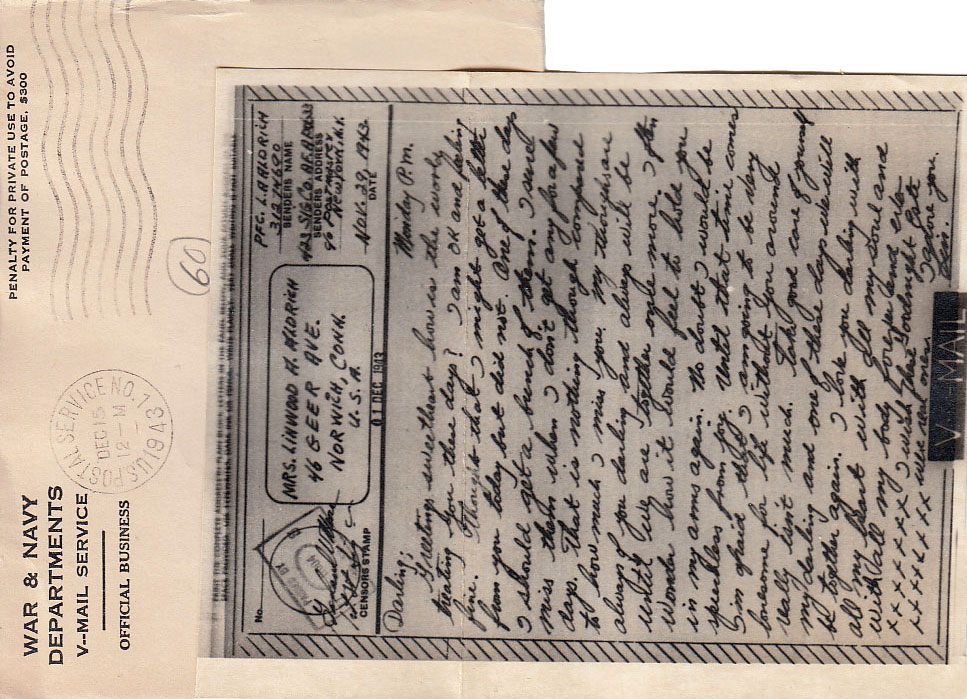 WAR & NAVY
DEPARTMENTS
V--MAIL SERVICE
OFFICIAL BUSINESS
U.S. POSTAL SERVICE NO. 1
DEC 15
12 - M
1943
PENALTY FOR PRIVATE USE TO AVOID
PAYMENT OF POSTAGE, $300
60
No.
CENSORS STAMP
MRS. LINWOOD A. ALDRICH
46 GEER AVE.
NORWICH, CONN.
U. S. A.
01 DEC 1943
PFC. L. A ALDRICH
31214690
SENDERS NAME
SENDERS ADDRESS
% POSTMASTER
NEW YORK, N.Y.
NOV. 29, 1943
DATE
Monday P.m.
Darling;
Greetings sweetheart how is the world
treating you these days? I am OK and feeling
fine. Thought that I might get a letter
from you today but did not. One of these days
I should get a bunch of them. I sure
miss them when I don't get any for a few
days. That is nothing though compared
to how much I miss you. My thoughts are
always of you darling and always will be
until we are together once more. I often
wonder how it would feel to hold you
in my arms again. No doubt I would be
speechless from joy. Until that time comes
I'm afraid that I am going to be very
lonesome for life without you around
really isn't much. Take good care of yourself
my darling and one of these days we will
be together again. I love you darling with
all my heart with all my soul and
with all my body forever and ever
x x x x x x x I wish that Goodnight Pat
x x x x x x x were real ones I adore you.
Lin.
V---MAIL